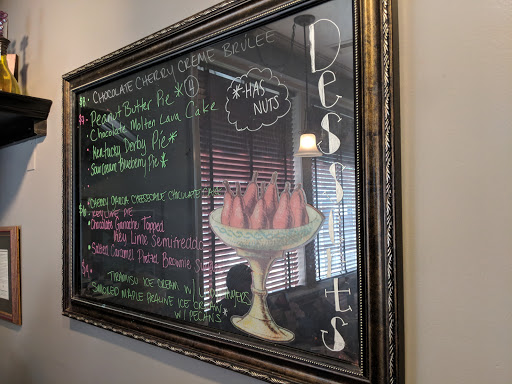 Desserts
CHOCOLATE CHERRY CREME BRÛLEE
Peanut Butter Pie * 4
Chocolate Molten Lava Cake
Kentucky Derby Pie *
Sour Cream Blueberry Pie *
* - HAS
NUTS
CHOCOLATE CAKE
KEY LIME PIE
Chocolate Ganache Topped
Key Lime Semifreddo
Salted Caramel Pretzel Brownie
TIRAMISU ICE CREAM W/
SMOKED MAPLE PRALINE ICE CREAM
W/ PECANS *